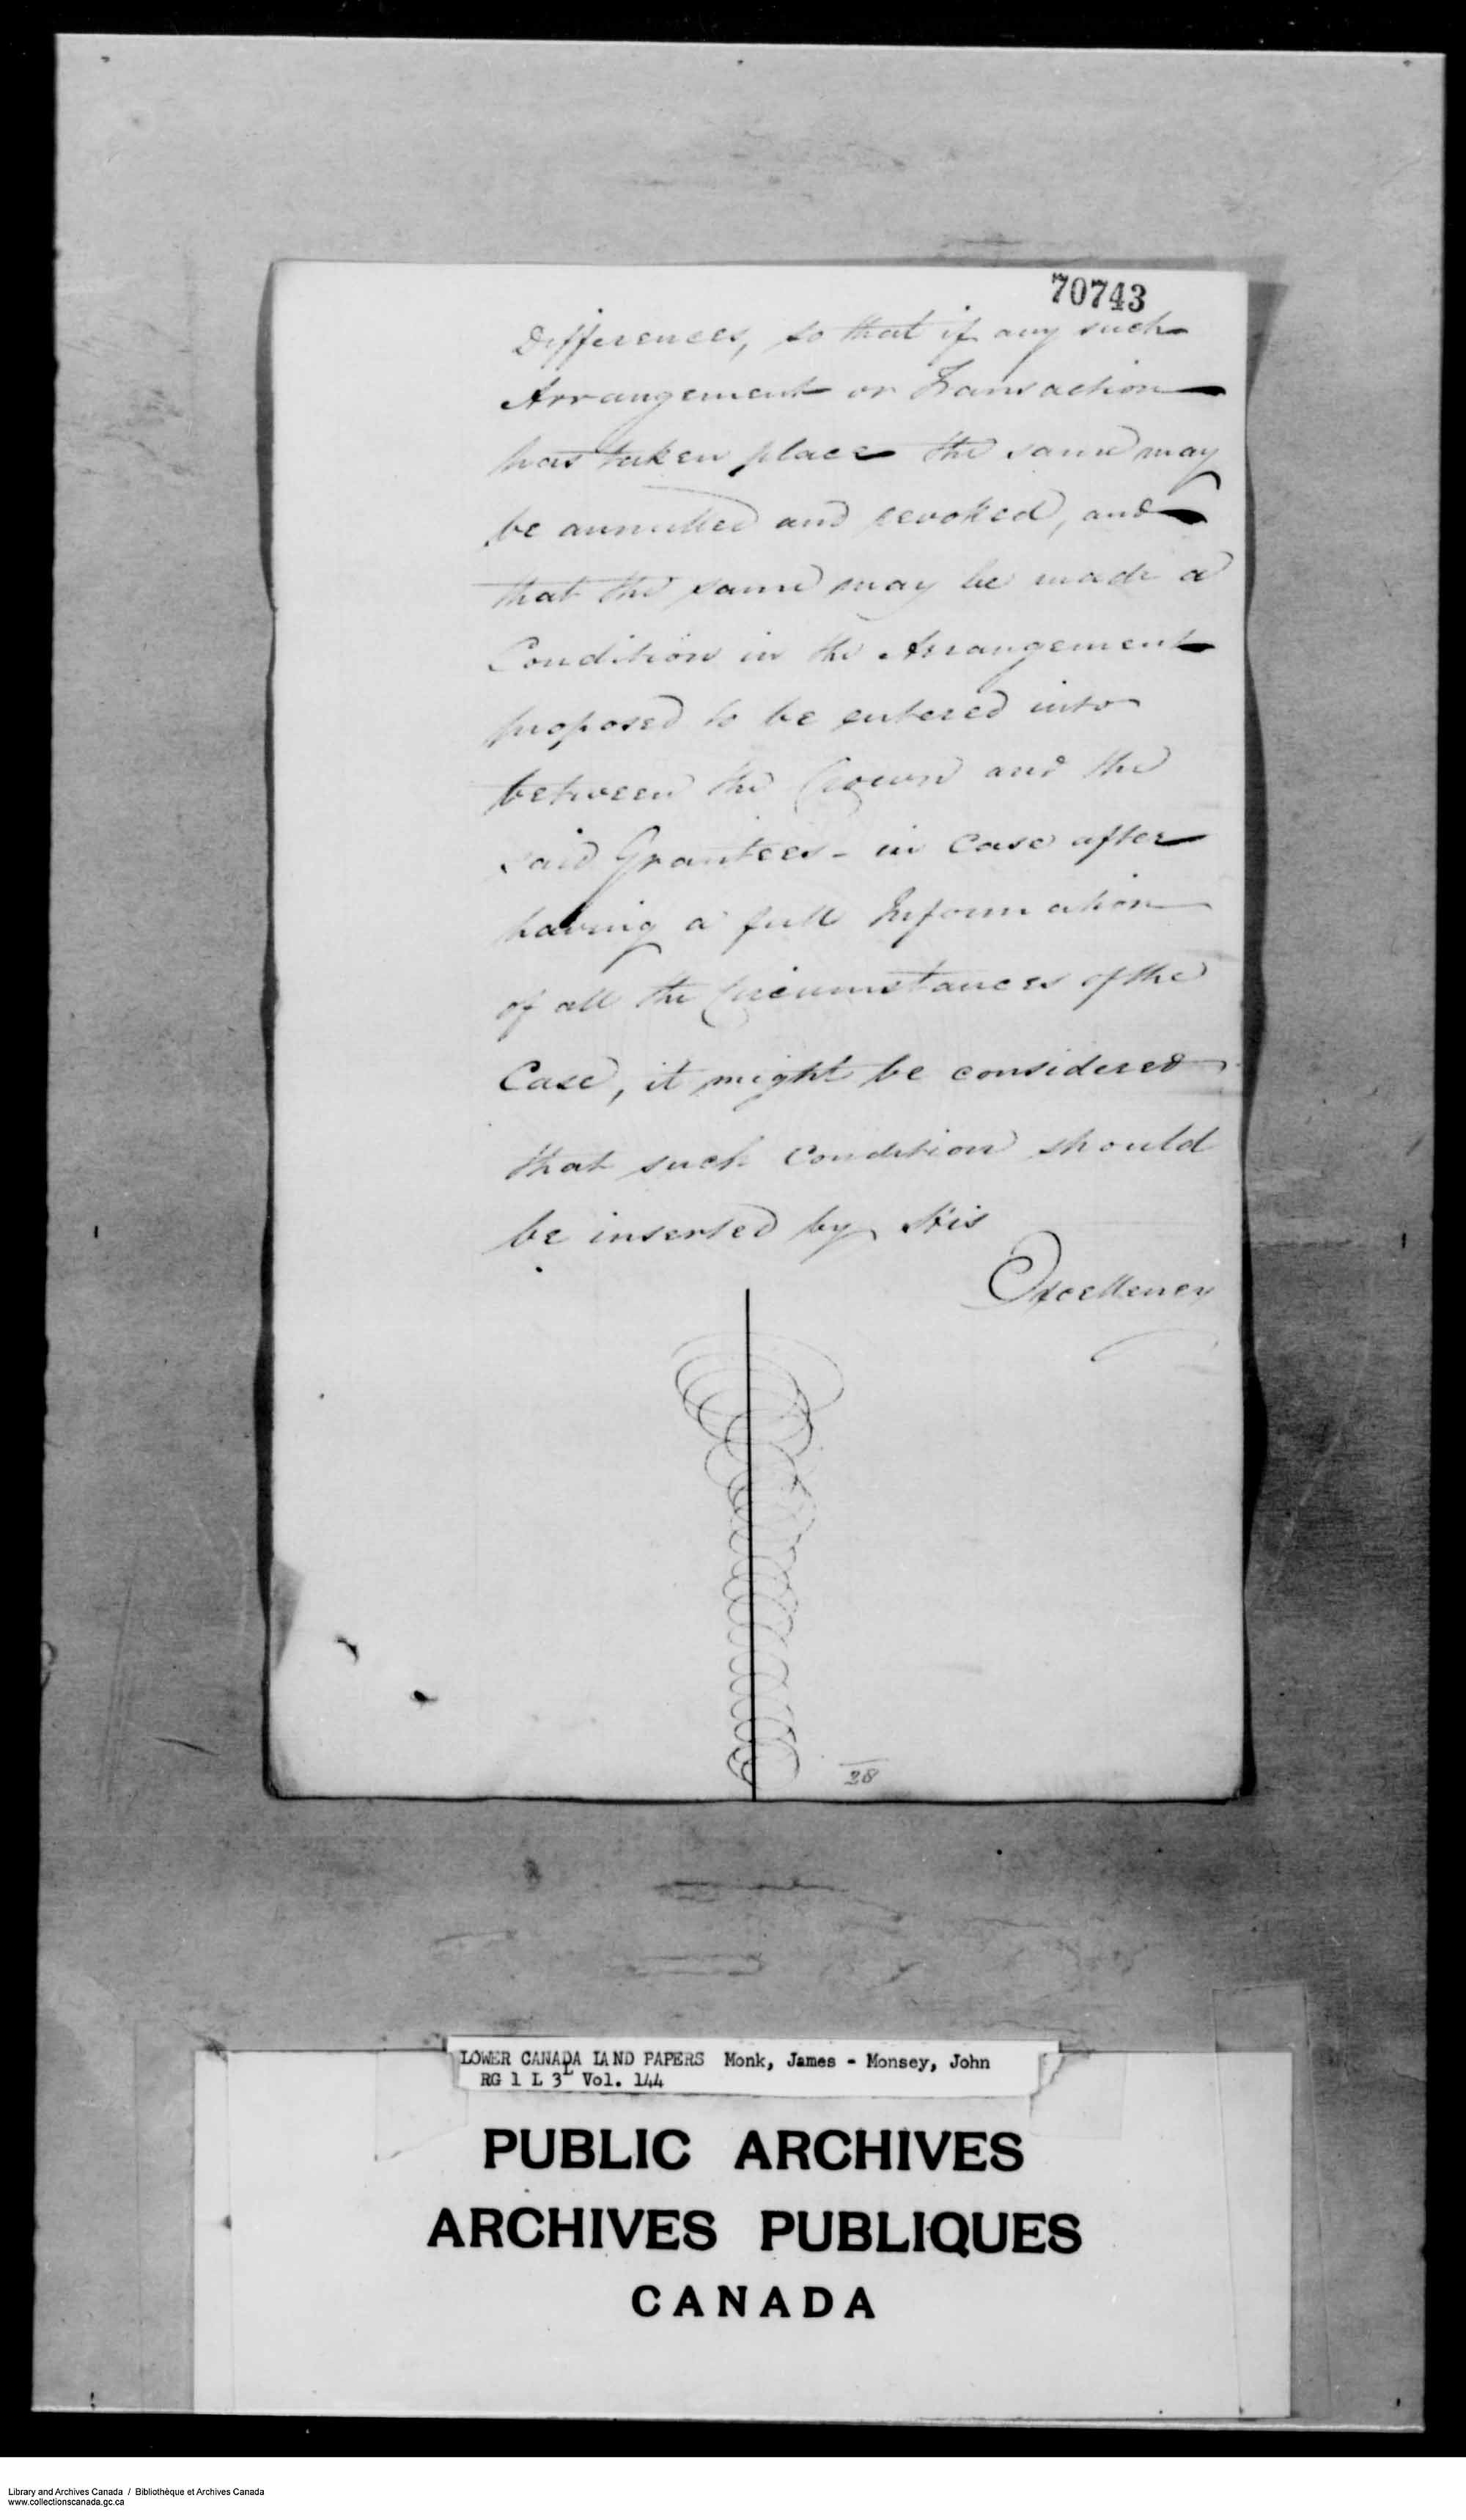 70743
Differences, so that if any such
Arrangement or Transaction
has taken place the same may
be annulled and revoked, and
that the same may be made a
Condition in the Arrangement
proposed to be entered into
between the Crown and the
said Grantees - in Case after
having a full Information
of all the Circumstances of the
Case, it might be considered
that such Condition should
be inserted by His
Excellency
28
LOWER CANADA LAND PAPERS Monk, James - Monsey, John
RG 1 L 3L Vol. 144
PUBLIC ARCHIVES
ARCHIVES PUBLIQUES
CANADA
Library and Archives Canada / Bibliothèque et Archives Canada
www.collectionscanada.gc.ca